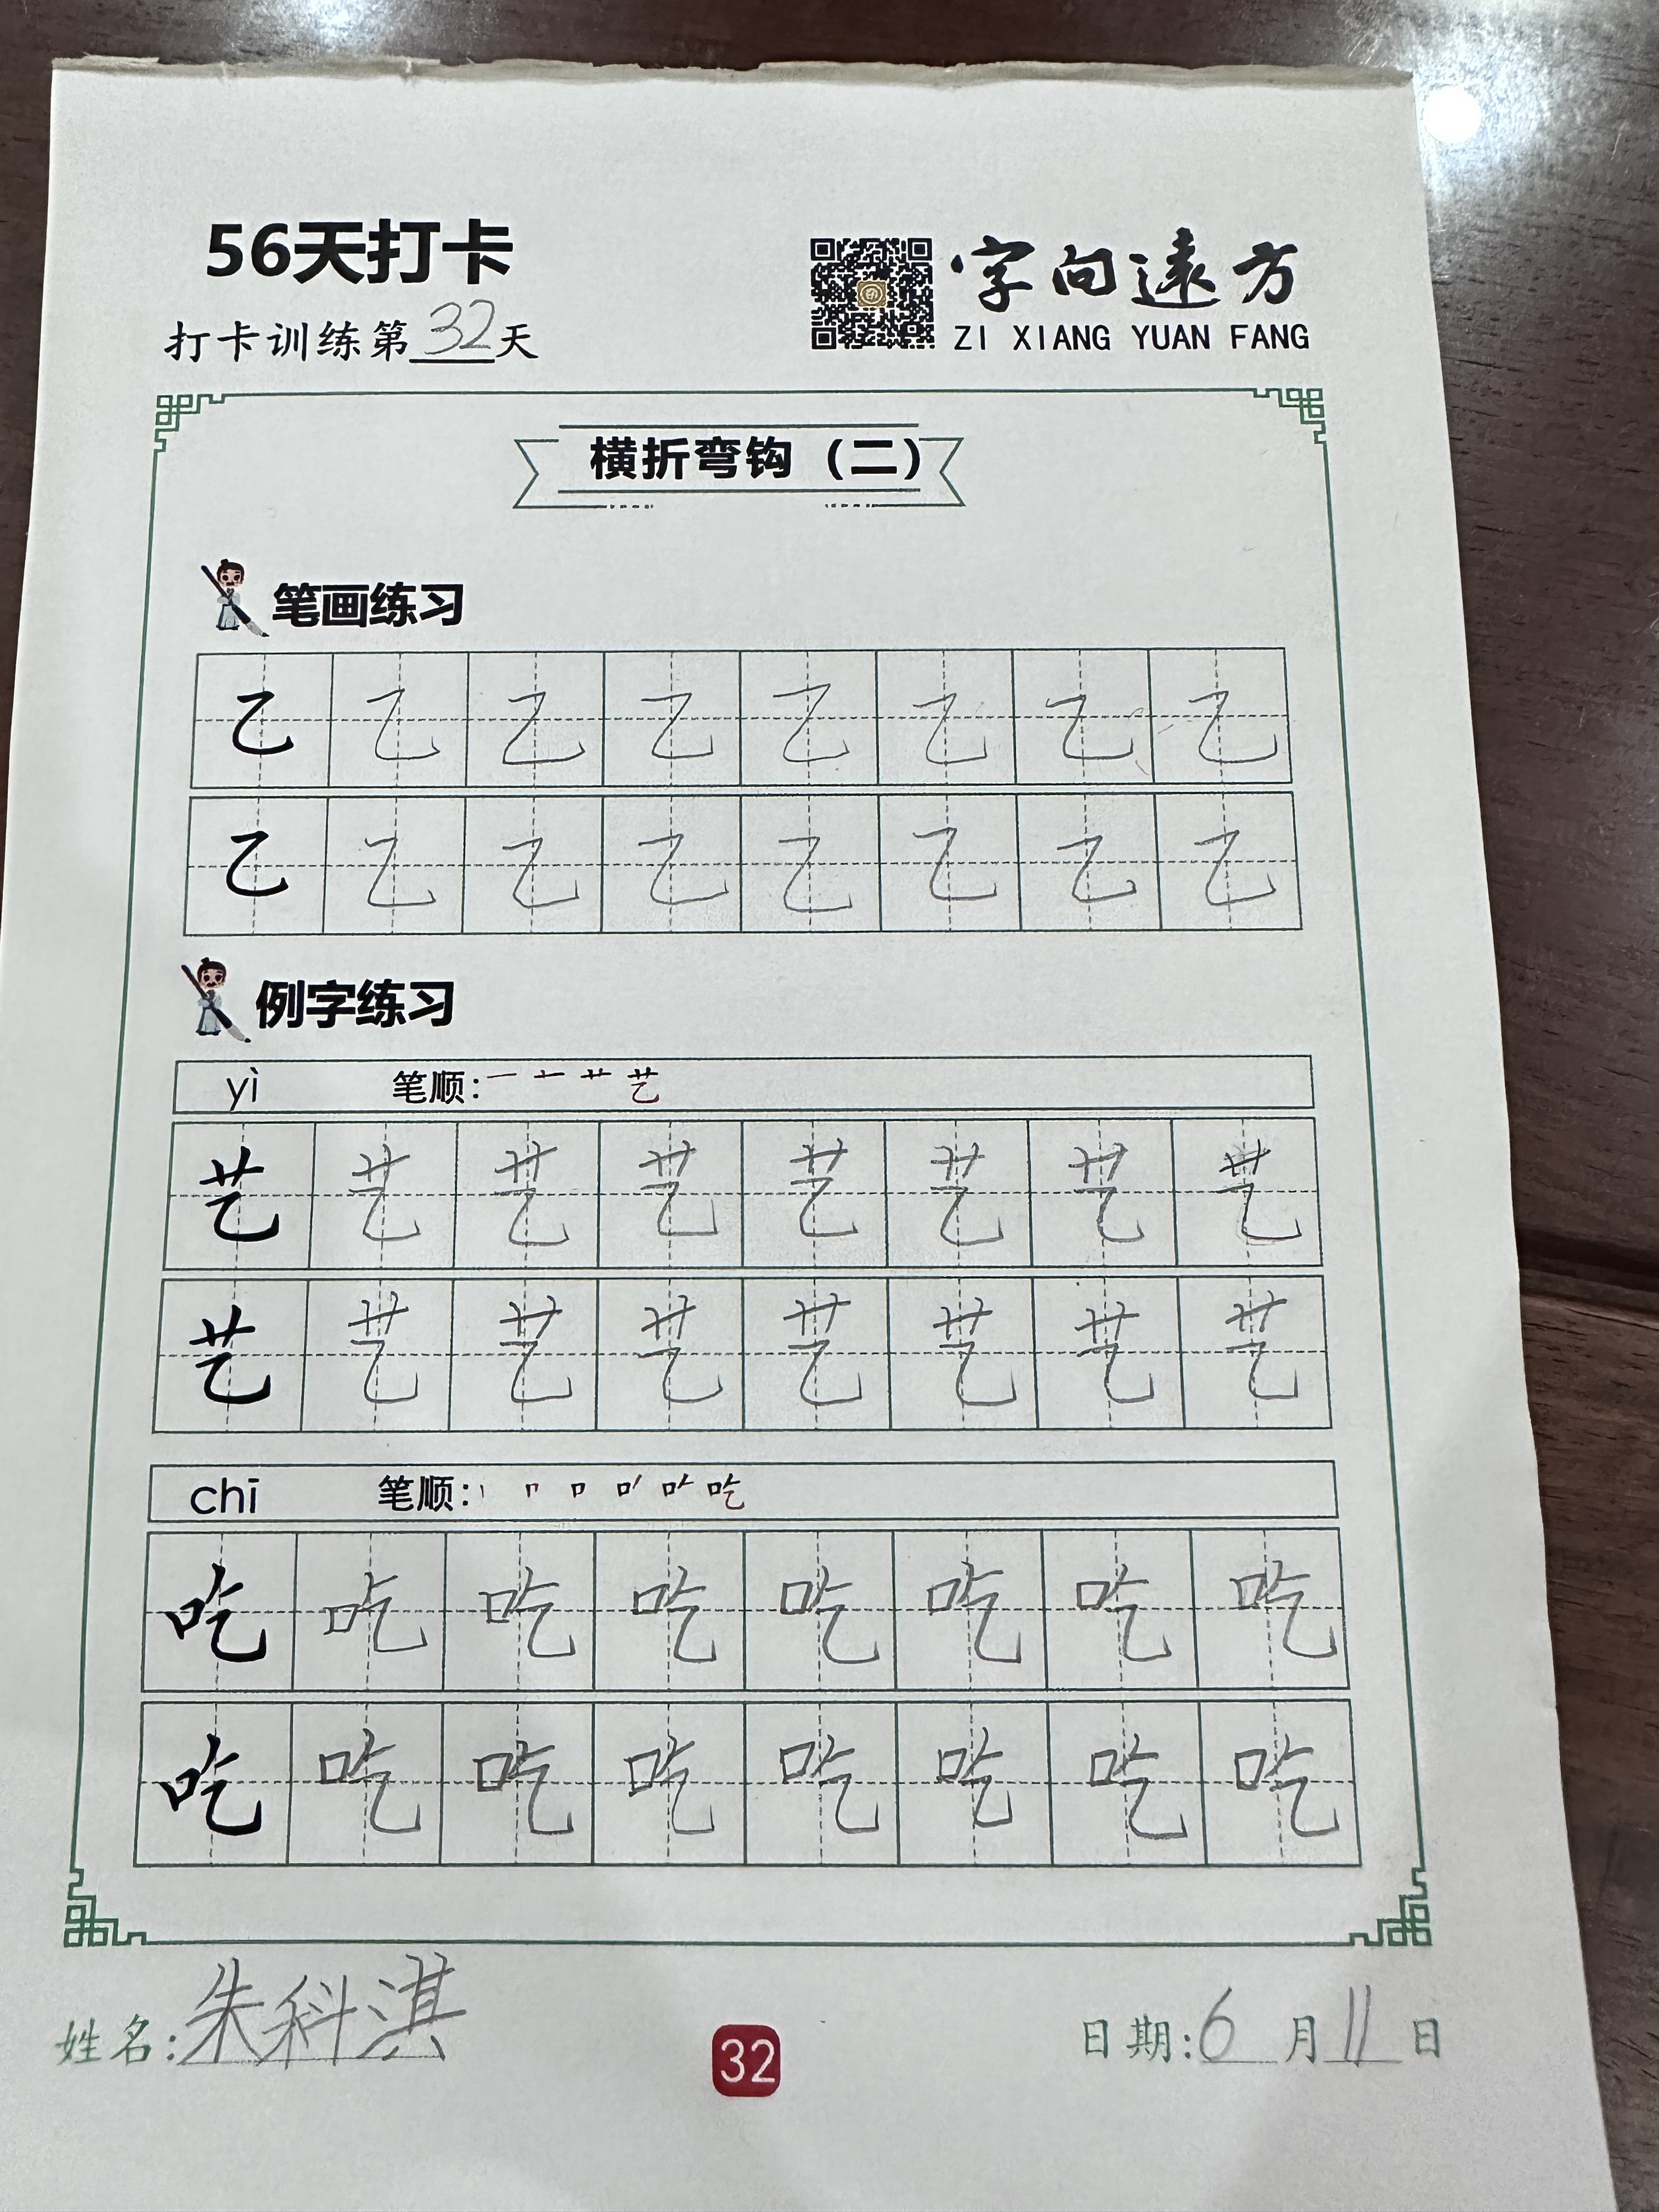 56天打卡
字向遠方
打卡训练第32天
ZI XIANG YUAN FANG
横折弯钩（二）
笔画练习
乙 乙 乙 乙 乙 乙 乙 乙
乙 乙 乙 乙 乙 乙 乙 乙
例字练习
yì 笔顺: 一 艹 艺
艺 艺 艺 艺 艺 艺 艺 艺
艺 艺 艺 艺 艺 艺 艺 艺
chī 笔顺: 丨 口 吃
吃 吃 吃 吃 吃 吃 吃 吃
吃 吃 吃 吃 吃 吃 吃 吃
姓名:朱科淇 32 日期:6月11日